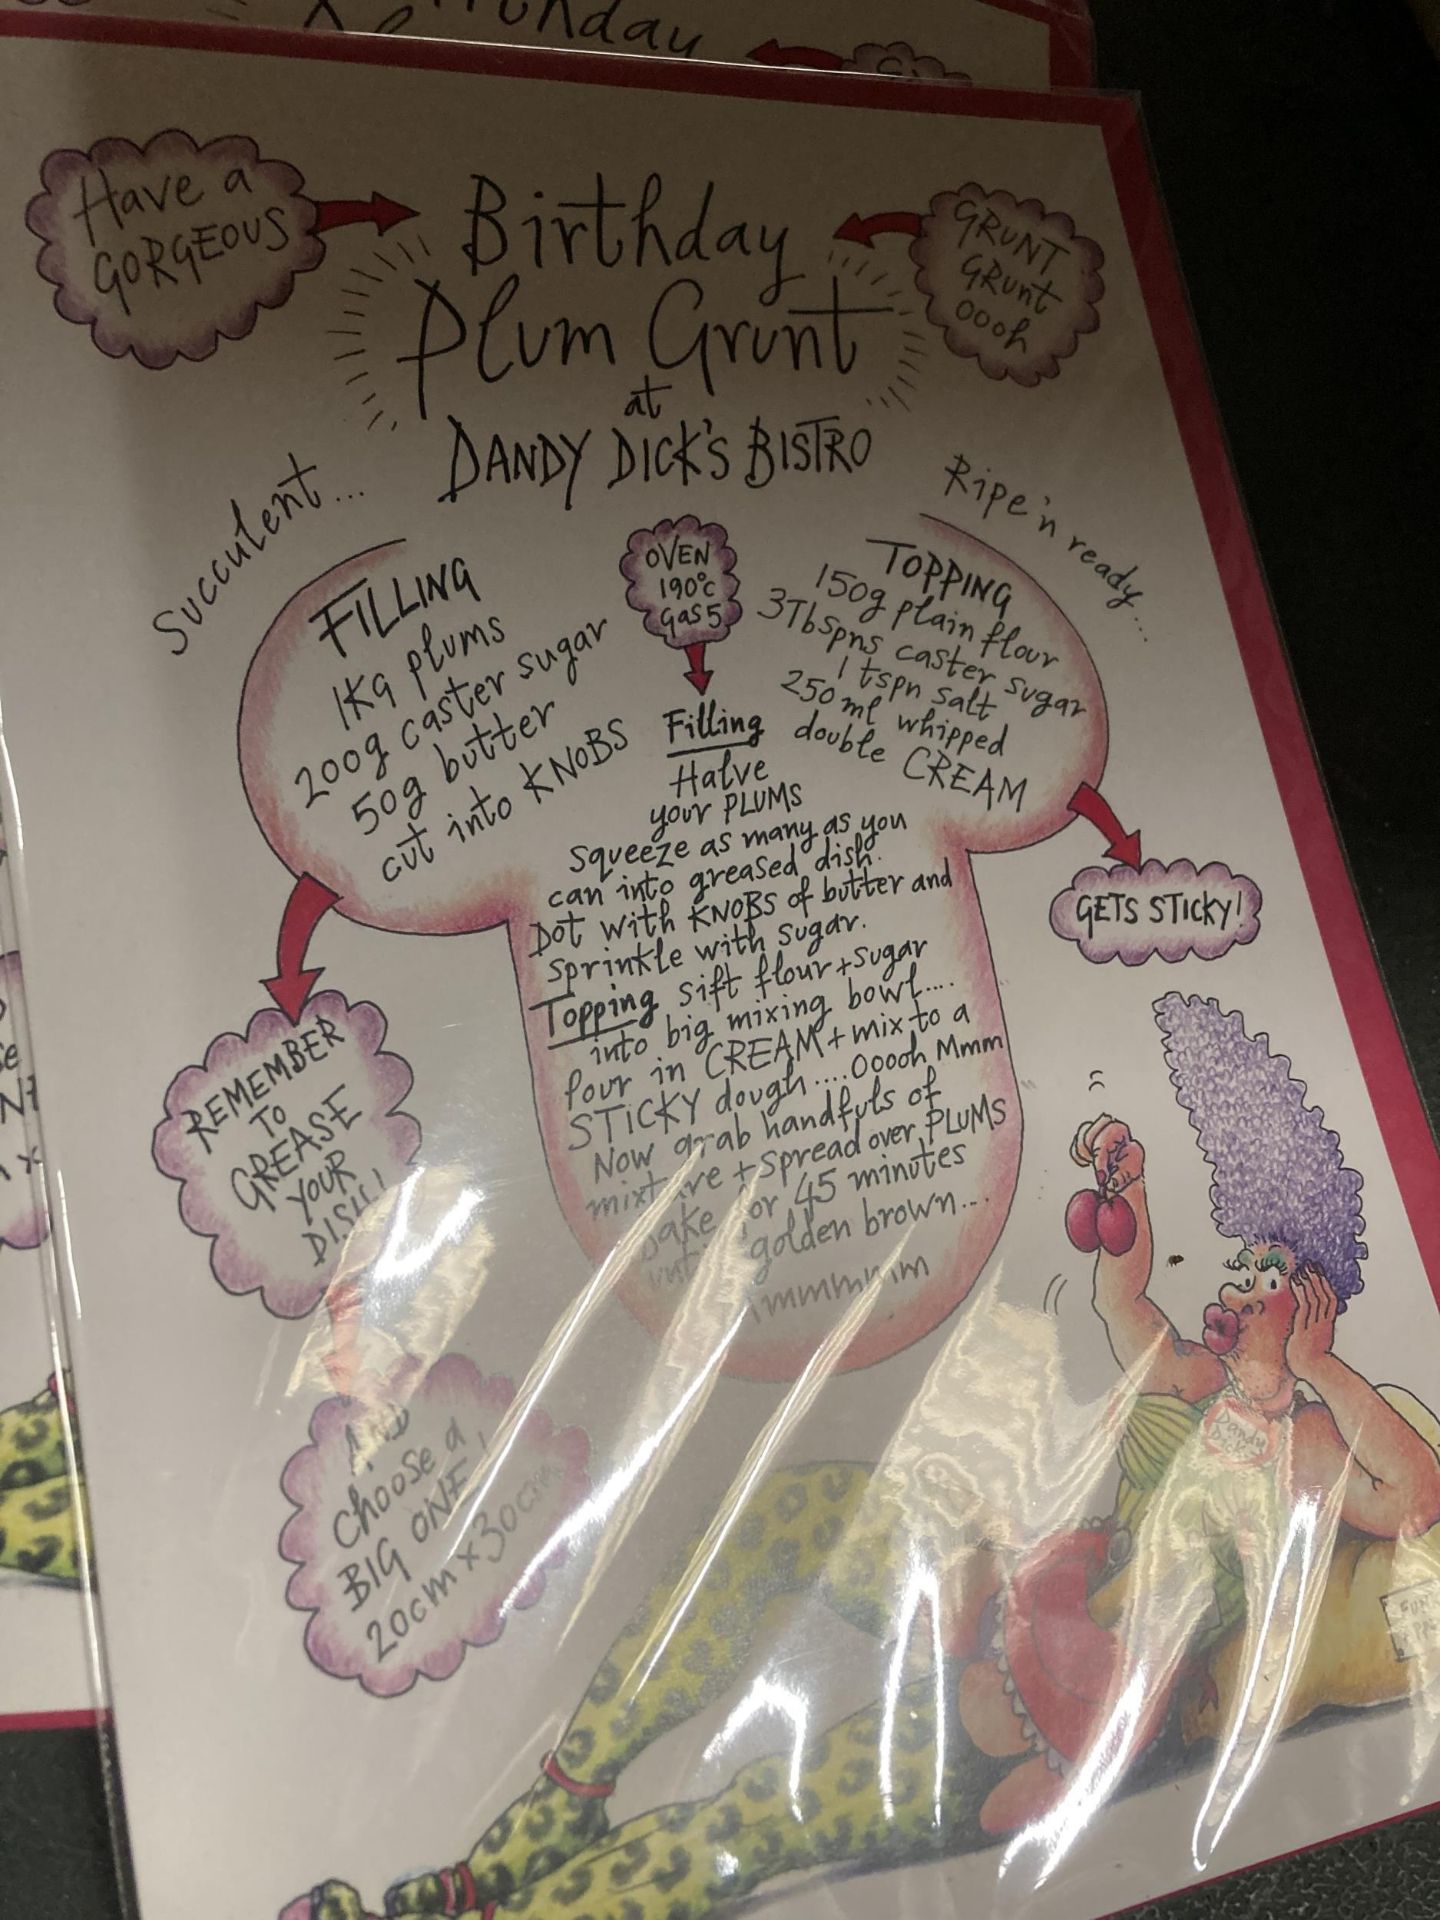 Have a
GORGEOUS
Birthday
Plum Grunt
at
DANDY DICK'S BISTRO
GRUNT
GRUNT
OOOh
Succulent...
Ripe 'n ready...
FILLING
1Kg plums
200g caster sugar
50g butter
cut into KNOBS
OVEN
190°C
Gas 5
TOPPING
150g plain flour
3Tbspns caster sugar
1 tspn salt
250 ml whipped
double CREAM
GETS STICKY!
Filling
Halve
your PLUMS
Squeeze as many as you
can into greased dish.
Dot with KNOBS of butter and
sprinkle with sugar.
Topping sift flour + sugar
into big mixing bowl....
Pour in CREAM + mix to a
STICKY dough....Ooooh Mmm
Now grab handfuls of
mixture + spread over PLUMS
bake for 45 minutes
until golden brown....
REMEMBER
TO
GREASE
YOUR
DISH!
AND
Choose a
BIG ONE,
20cm x 30cm
Dandy
Dick